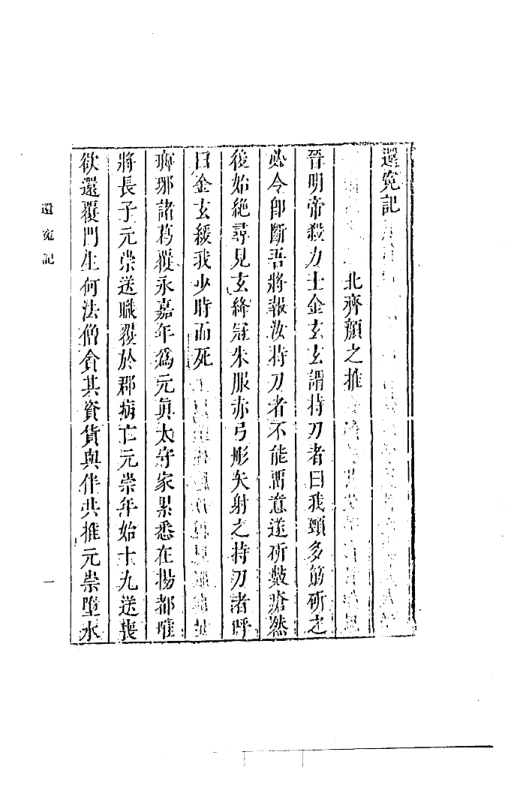 還冤記
北齊顏之推
晉明帝殺力士金玄玄謂持刀者曰我頸多筋斫之
必令即斷吾將報汝持刀者不能留意遂斫數瘡然
後始絕尋見玄絳冠朱服赤弓彤矢射之持刀者呼
曰金玄緩我少時而死
瑯琊諸葛覆永嘉年爲元真太守家累悉在揚都唯
將長子元崇送職覆於郡病亡元崇年始十九送喪
欲還覆門生何法僧貪其資貨與伴共推元崇墮水
還冤記
一